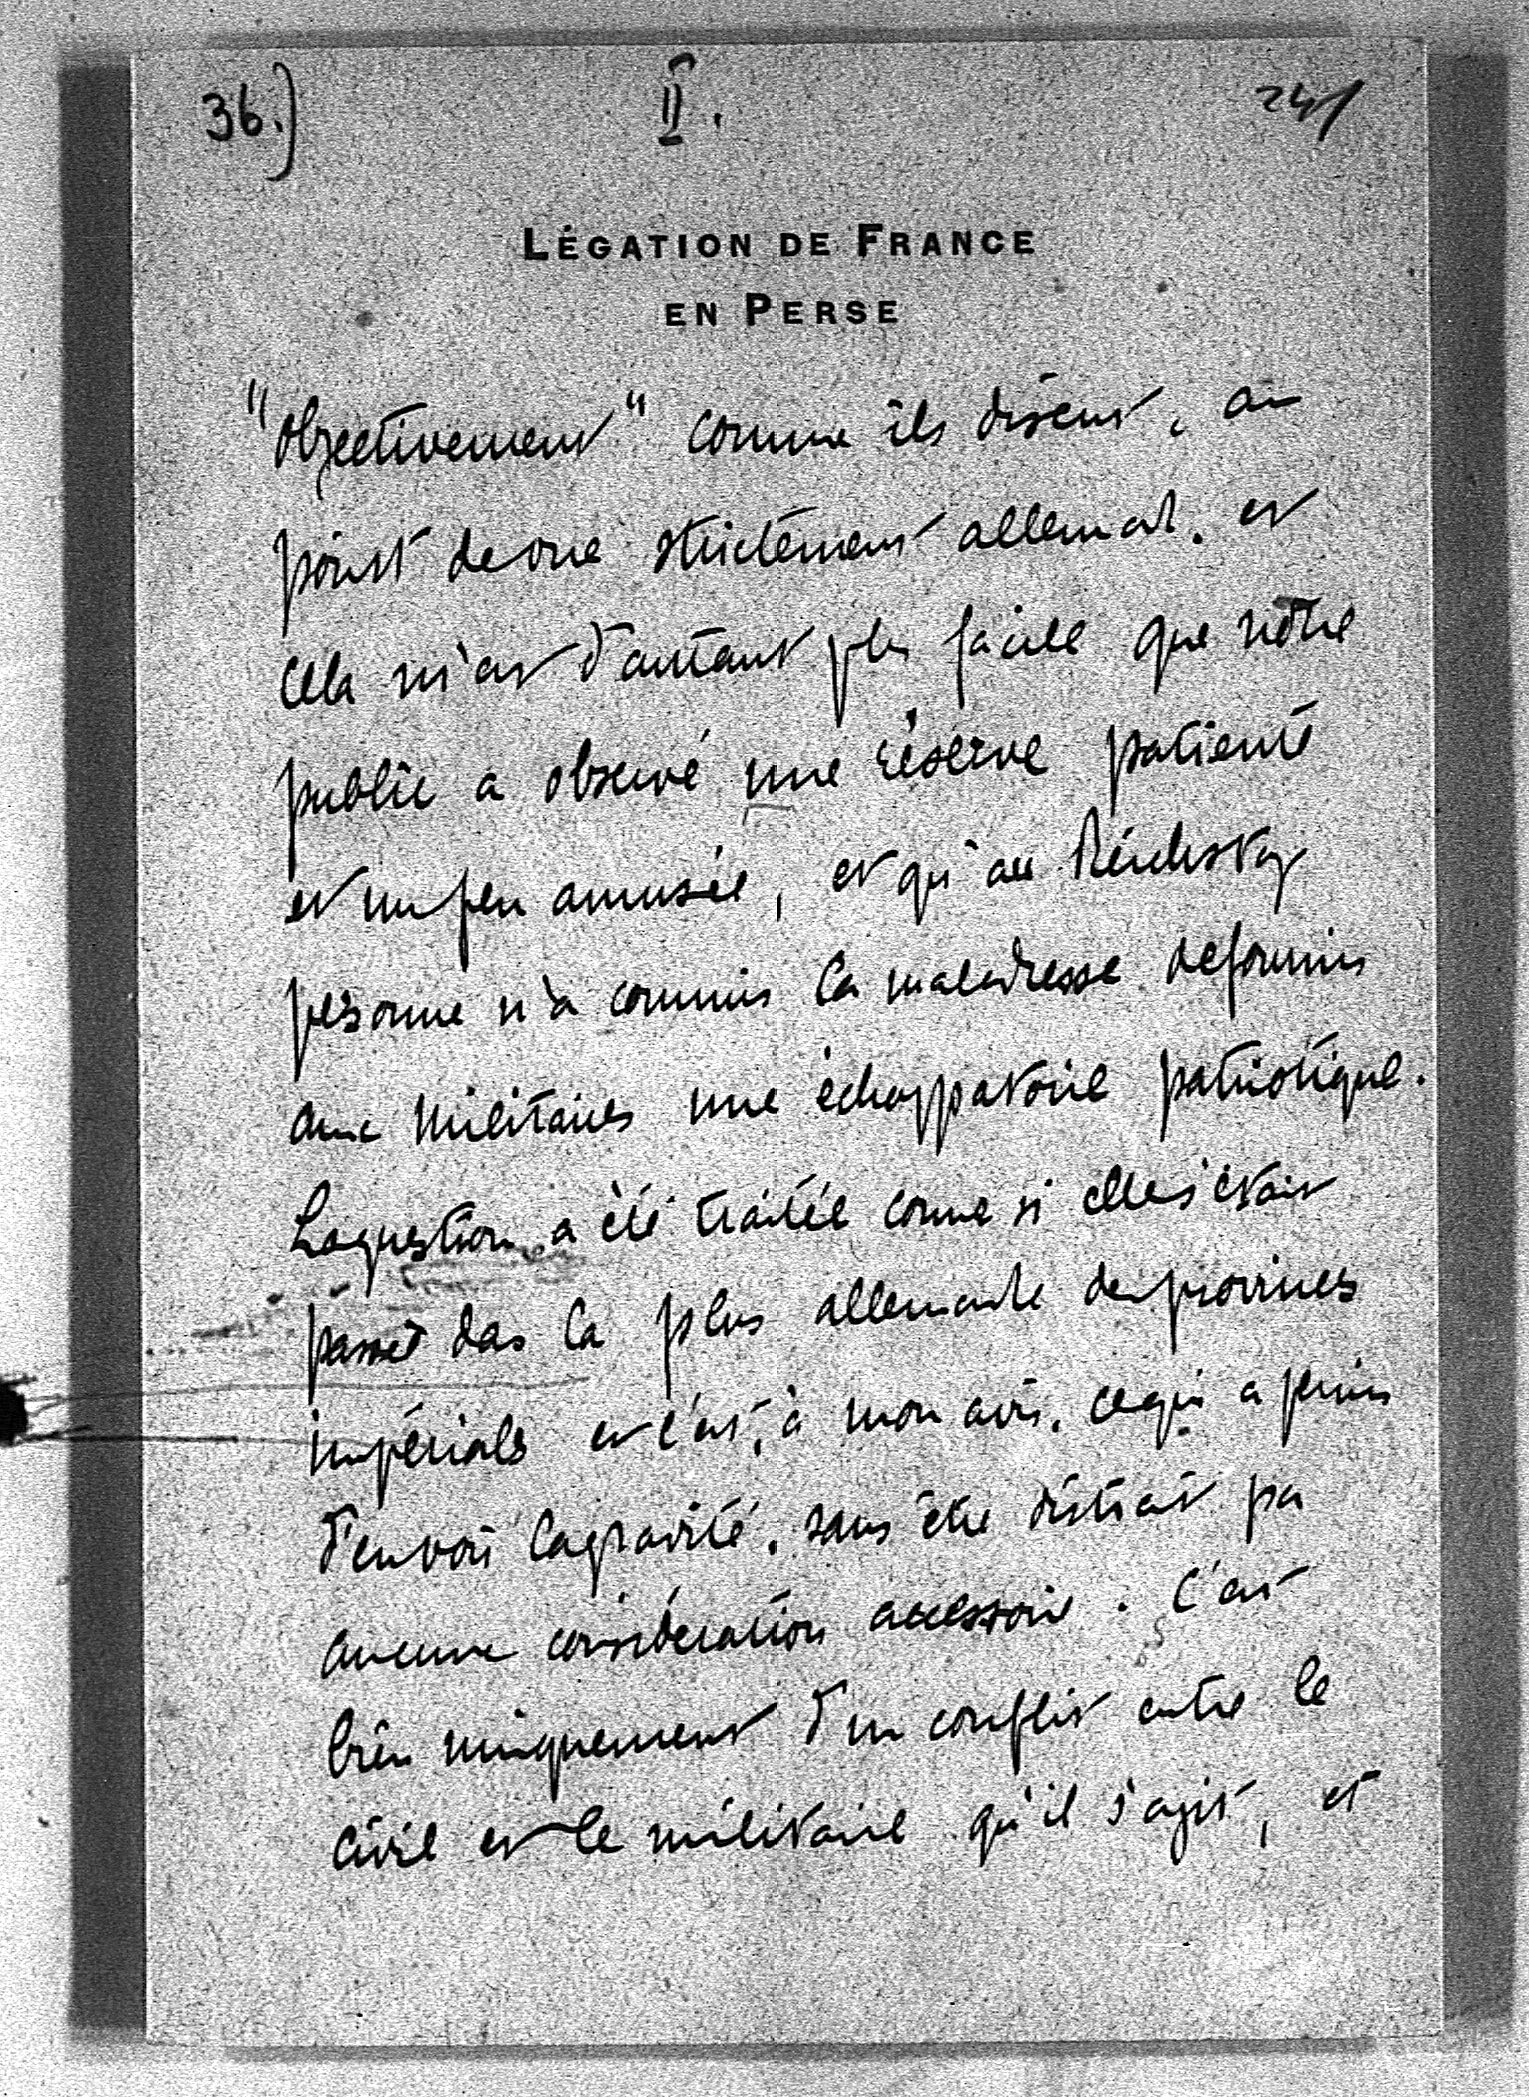 36.) II. 241
LÉGATION DE FRANCE
EN PERSE
"objectivement" comme ils disent, au
point de vue strictement allemand. et
cela m'est d'autant plus facile que notre
public a observé une réserve patiente
et un peu amusée, et qu'au Reichstag
personne n'a commis la maladresse de fournir
aux militaires une échappatoire patriotique.
La question a été traitée comme si elle s'était
passée dans la plus allemande des provinces
impériales et c'est, à mon avis, ce qui a permis
d'en voir la gravité, sans être distrait par
aucune considération accessoire. C'est
bien uniquement d'un conflit entre le
civil et le militaire qu'il s'agit, et